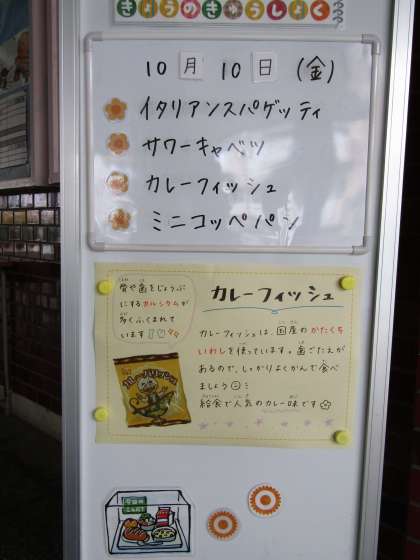 きょうのきゅうしょく
10月10日(金)
イタリアンスパゲッティ
サワーキャベツ
カレーフィッシュ
ミニコッペパン
骨や歯をじょうぶ
にするカルシウムが
多くふくまれて
います
カレーフィッシュ
カレーフィッシュは、国産のかたくち
いわしを使っています。歯ごたえが
あるので、しっかりよくかんで食べ
ましょう
給食で人気のカレー味です